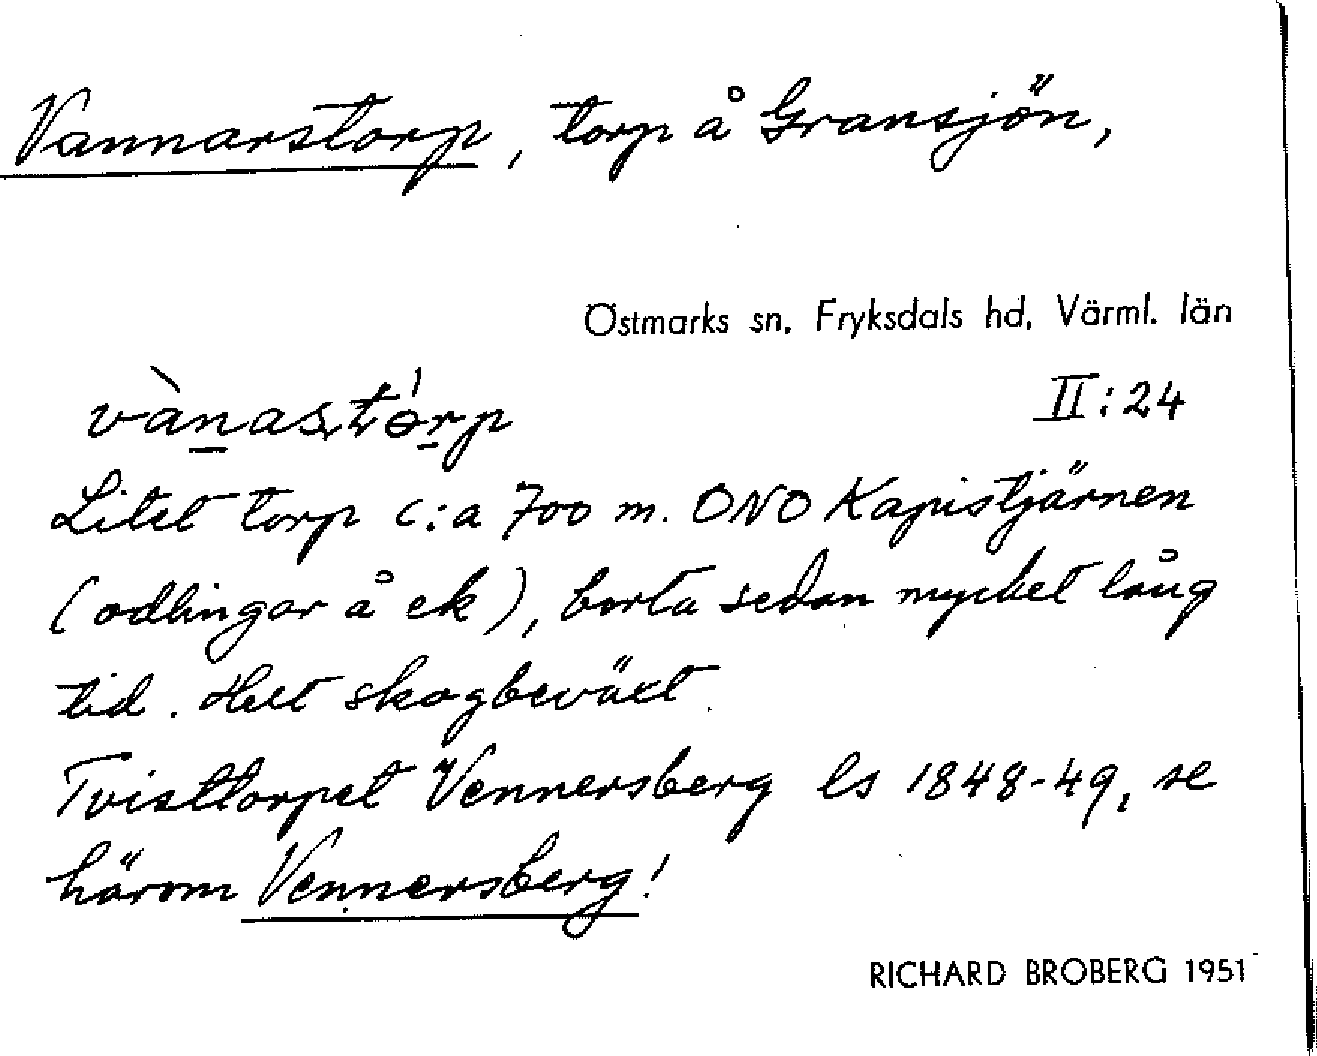 Vannarstorp, torp å Gransjön,
Östmarks sn, Fryksdals hd, Värml. län
vànastórp II:24
Litet torp c:a 700 m. ONO Kapistjärnen
(odlingar å ek), borta sedan mycket lång
tid. Helt skogbeväxt.
Tvisttorpet Vennersberg ls 1848-49, se
härom Vennersberg!
RICHARD BROBERG 1951